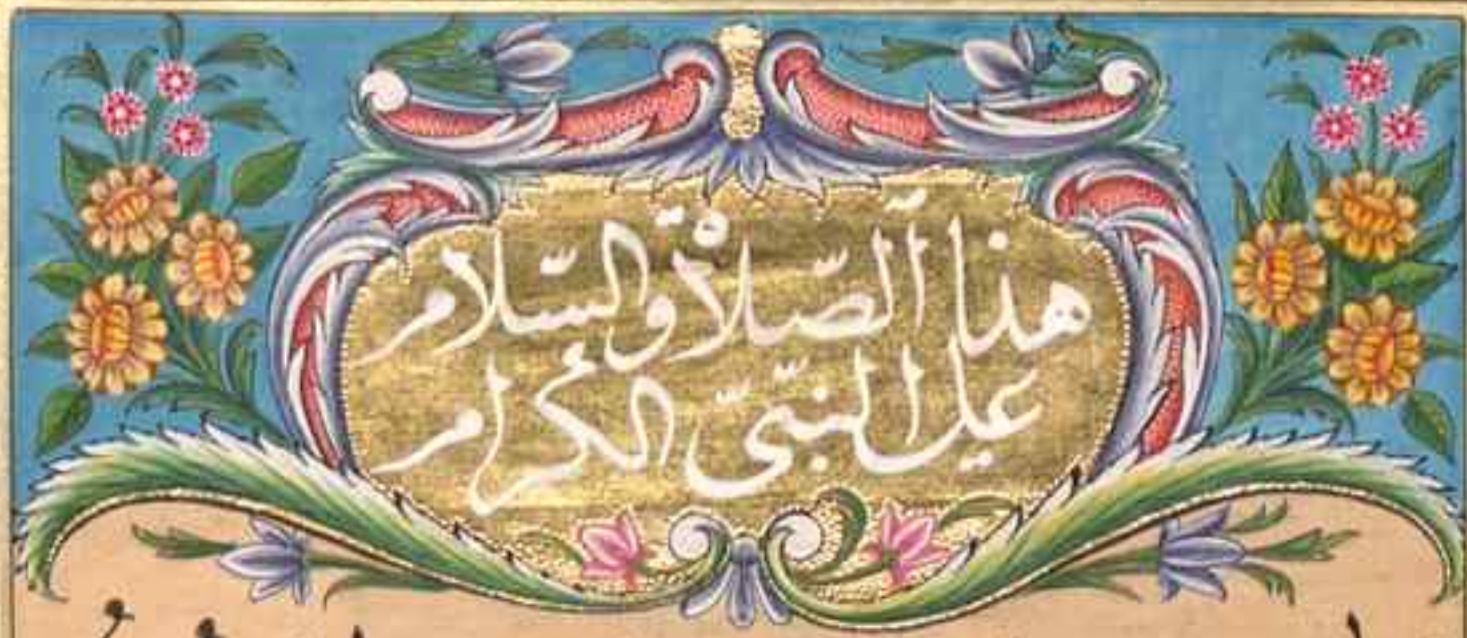 هذا الصّلاة والسّلام
على النّبىّ الكُرام